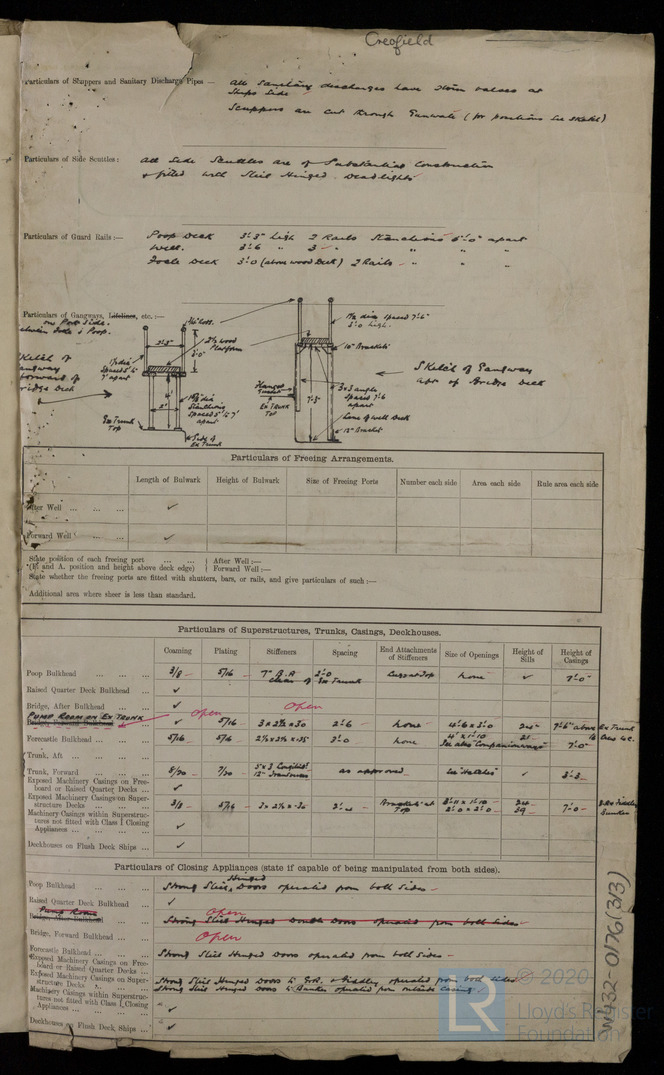 Creofield
Particulars of Scuppers and Sanitary Discharge Pipes — All Sanitary discharges have storm valves at
Ships Side
Scuppers are cut through Gunwale (for positions see sketch)
Particulars of Side Scuttles: All Side Scuttles are of Substantial Construction
& fitted with Steel Hinged Deadlights
Particulars of Guard Rails:— Poop Deck 3'3" high 2 Rails Stanchions 5'0" apart
Well. 3'6 " 3 " " " "
Focle Deck 3'0 (above wood Deck) 2 Rails - " " "
Particulars of Gangways, Lifelines, etc.:—
on Port Side.
between Focle & Poop.
Sketch of
gangway
forward of
Bridge Deck
2½ wood
Platform
3'0"
Ex Trunk
Top
Side of
Ex Trunk
spaced 7'6"
3'0 high.
10" Brackets
Sketch of Gangway
aft of Bridge Deck
3x3 angle
spaced 7'6
apart
Line of Well Deck
12" Bracket
Ex TRUNK
Top
Particulars of Freeing Arrangements.
Length of Bulwark Height of Bulwark Size of Freeing Ports Number each side Area each side Rule area each side
After Well ... ... ... ✓
Forward Well ... ... ✓
State position of each freeing port ... ... After Well :—
(F. and A. position and height above deck edge) Forward Well :—
State whether the freeing ports are fitted with shutters, bars, or rails, and give particulars of such :—
Additional area where sheer is less than standard.
Particulars of Superstructures, Trunks, Casings, Deckhouses.
Coaming Plating Stiffeners Spacing End Attachments of Stiffeners Size of Openings Height of Sills Height of Casings
Poop Bulkhead ... ... ... 3/8 5/16 7" B.A 2'0 none ✓ 7'0"
clear of Ex Trunk
Raised Quarter Deck Bulkhead ... ✓
Bridge, After Bulkhead ... ... ✓ Open Open
PUMP ROOM ON EX TRUNK
Bridge, Forward Bulkhead ✓ 5/16 3 x 2½ x 30 2'6 none 4'6 x 3'0 24" 7'6" above Ex Trunk
Forecastle Bulkhead ... ... 5/16 5/16 2½ x 2½ x .25 3'0 none 4' x 1'10 21 7'0"
See also Companionways
Trunk, Aft ... ... ...
Trunk, Forward ... ... ... 8/20 7/20 as approved See Sketches ✓ 3'3
Exposed Machinery Casings on Free-
board or Raised Quarter Decks ... ✓
Exposed Machinery Casings on Super-
structure Decks ... ... ... 3/8 5/16 3 x 2½ x .30 Brackets at Top 3'11 x 1'10 24 7'0
2'0 x 2'0 39
Machinery Casings within Superstruc-
tures not fitted with Class I Closing
Appliances ... ... ... ✓
Deckhouses on Flush Deck Ships ... ✓
Particulars of Closing Appliances (state if capable of being manipulated from both sides).
Poop Bulkhead ... ... ... Strong Steel Hinged Doors operated from both Sides —
Raised Quarter Deck Bulkhead ... ✓
Pump Room
Bridge, After Bulkhead ... ... Open
Strong Steel Hinged Double Doors operated from both Sides —
Bridge, Forward Bulkhead ... Open
Forecastle Bulkhead ... ... Strong Steel Hinged Doors operated from both Sides —
Exposed Machinery Casings on Free-
board or Raised Quarter Decks ...
Exposed Machinery Casings on Super-
structure Decks ... Strong Steel Hinged Doors to E.R. & Fiddley operated from both sides
Strong Steel Hinged Doors to Bunker operated from outside Casing
Machinery Casings within Superstruc-
tures not fitted with Class I Closing
Appliances ... ... ... ✓
Deckhouses on Flush Deck Ships ... ✓
W432-0176(3/3)
LR
© 2020
Lloyd's Register
Foundation